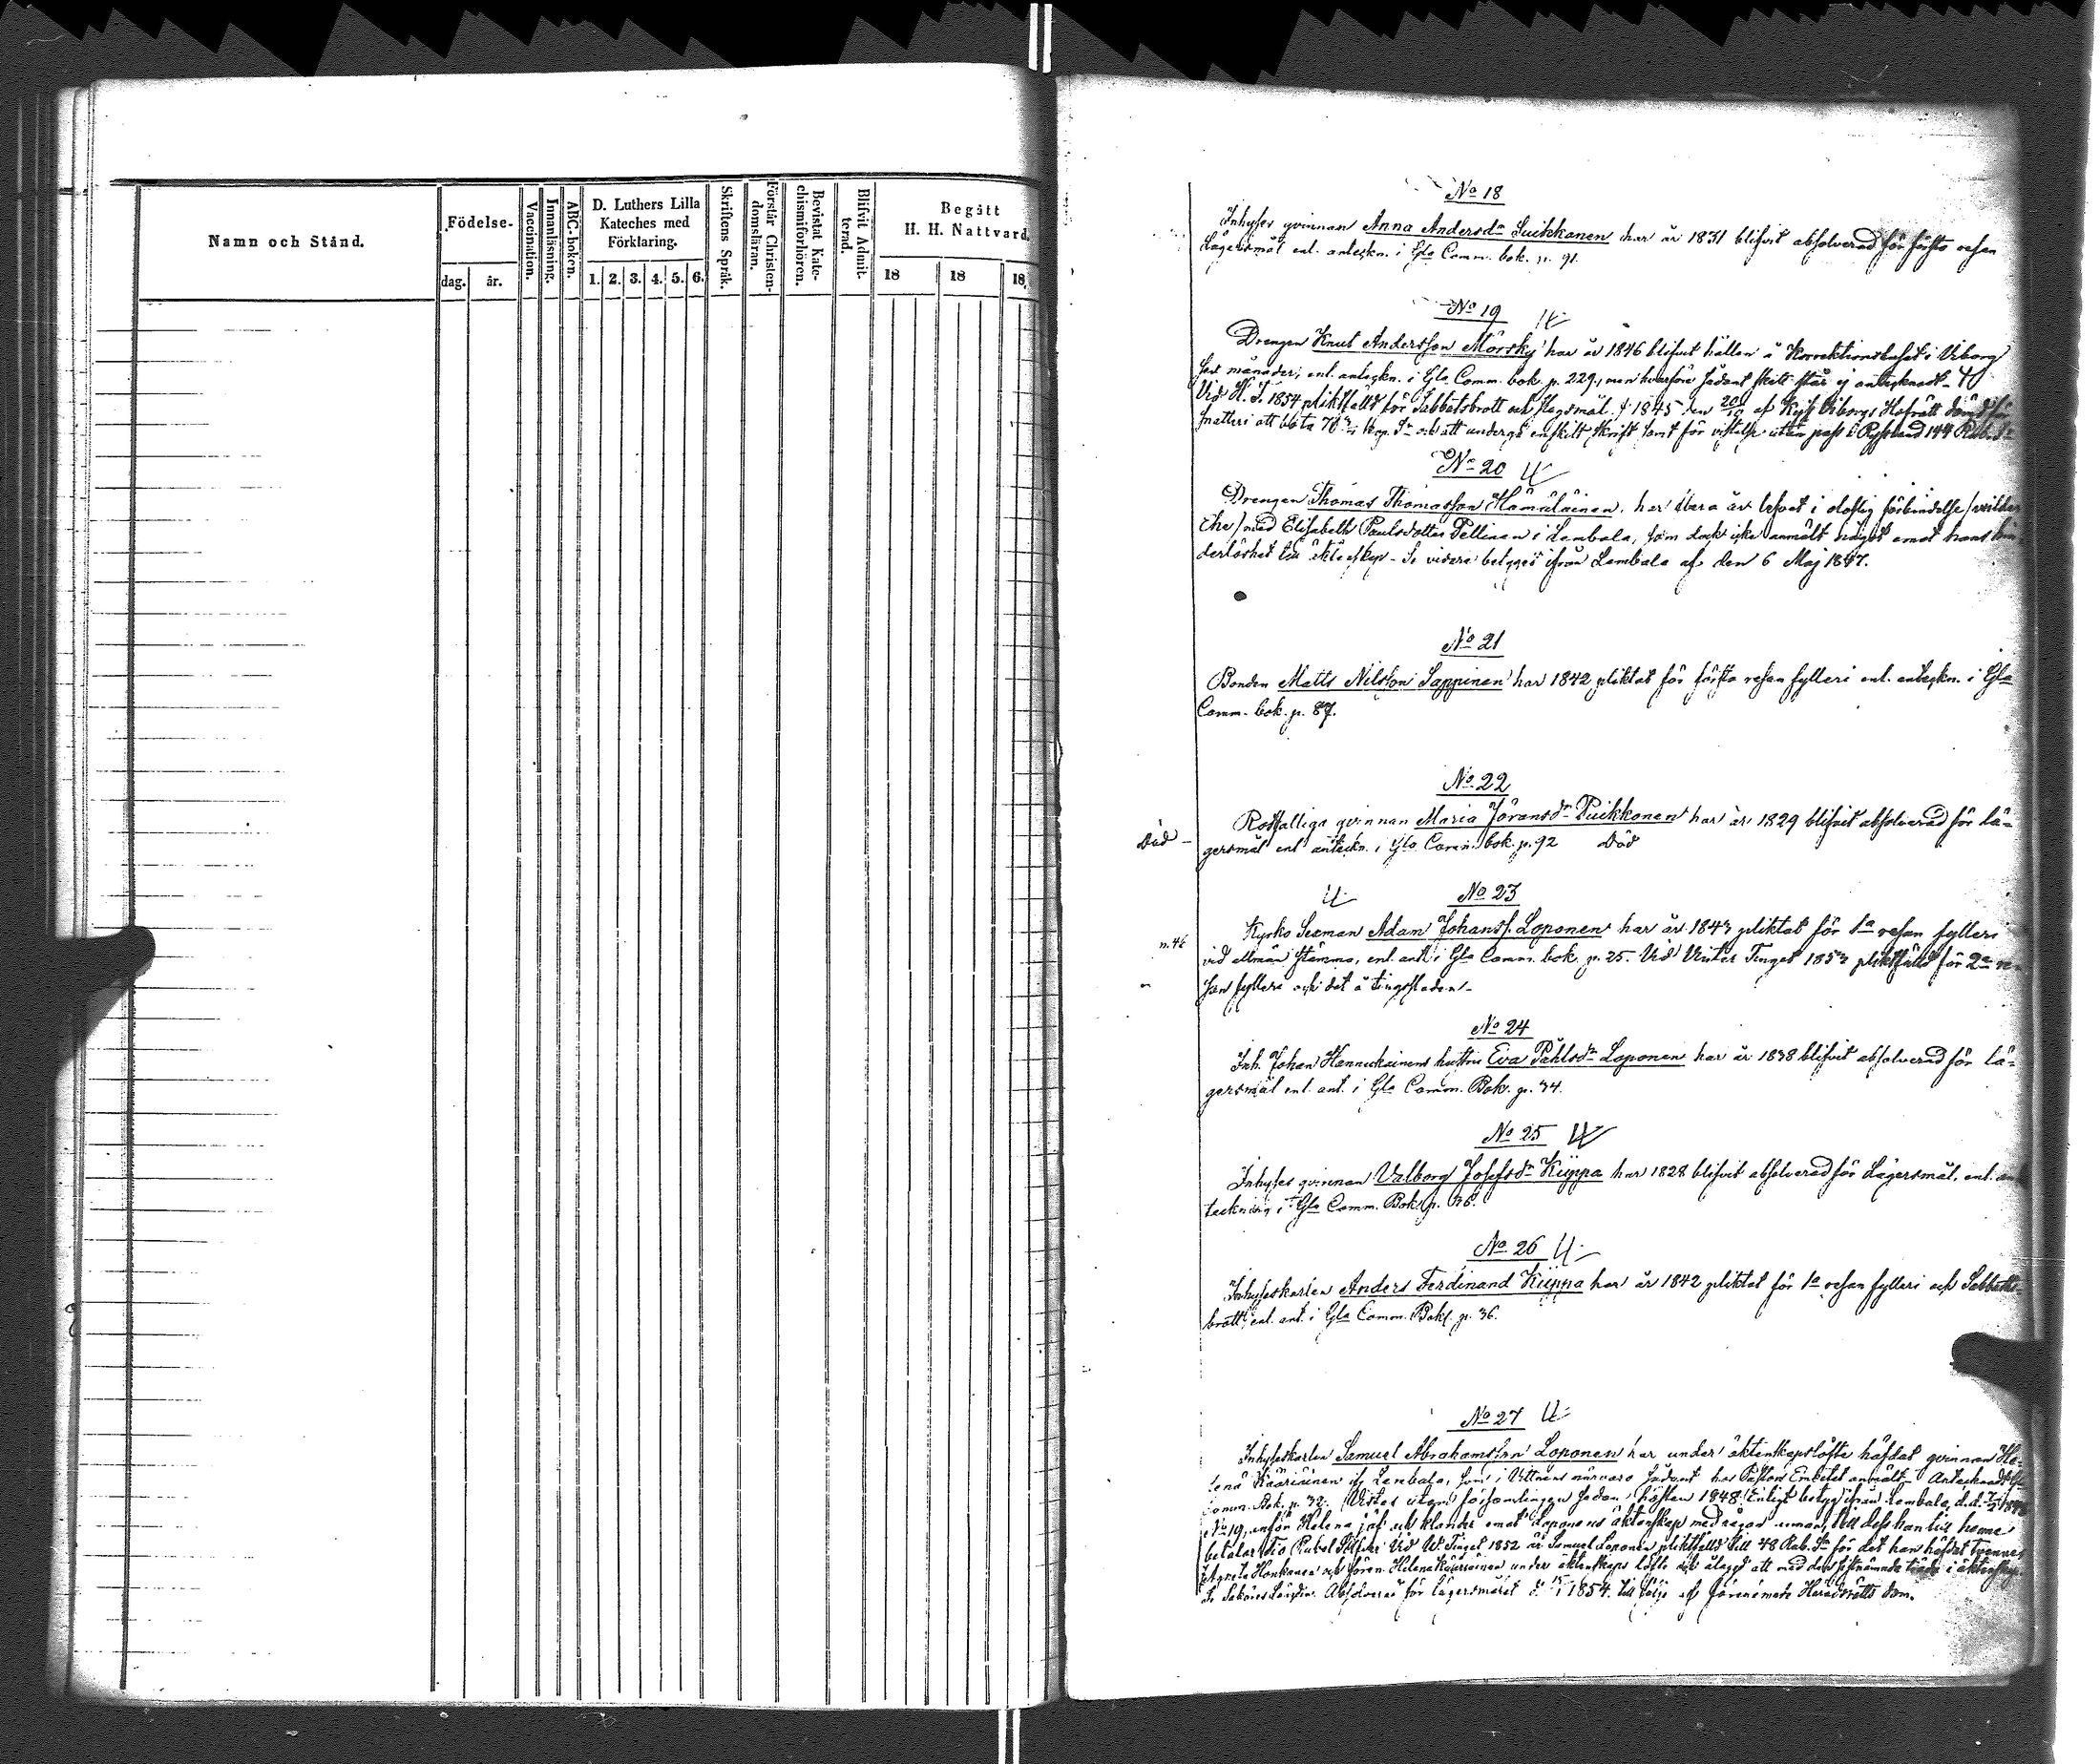 Namn och Stånd.
Födelse-
dag. år.
Vaccination.
Innanläsning.
ABC-boken.
D. Luthers Lilla
Kateches med
Förklaring.
1. 2. 3. 4. 5. 6.
Skriftens Språk.
Förstår Christen-
domsläran.
Bevistat Kate-
chismiförhören.
Blifvit Admit-
terad.
Begått
H. H. Nattvard.
18 18 18
No 18
Inhyses qvinnan Anna Andersdr Suikkanen har år 1831 blifvit absolverad för första resan
Lägersmål enl. anteckn. i Gla Comm. bok. p. 91.
No 19
Drengen Knut Andersson Mörsky har år 1846 blifvit hållen å Korrektionshuset i Viborg
sex månader, enl. anteckn. i Gla Comm. bok p. 229, men hvarföre sådant skett står ej antecknadt.
Vid H. T. 1854 pliktfälld för Sabbatsbrott och slagsmål. 1845 den af Kejs. Viborgs Hofrätt dömd för
snatteri att böta och att undergå enskilt skrift samt för vistelse utan pass i Ryssland 144 Rub. Sr
No 20
Drengen Thomas Thomasson Hämäläinen har flera år lefvat i olaflig förbindelse /
/ med Elisabeth Paulsdotter Pellinen i Lembala, som dock icke anmält något emot hans hin-
derlöshet till äktenskap. Se vidare betyget ifrån Lembala af den 6 Maj 1847.
No 21
Bonden Matts Nilsson Sappinen har 1842 pliktat för första resan fylleri enl. anteckn. i Gla
Comm. bok. p. 87.
No 22
Rotfalliga qvinnan Maria Jöransdr Puikkonen har år 1829 blifvit absolverad för lä-
Död -
gersmål enl anteckn. i Gla Comm. bok. p. 92 Död
No 23
Kyrko Sexman Adam Johanss. Loponen har år 1843 pliktat för 1a resan fylleri
n. 46
vid allmän stämma, enl. ant. i Gla Comm. bok. p. 25. Vid Vinter Tinget 1853 pliktfälld för 2a re-
san fylleri och det å tingsstaden.
No 24
Inh. Johan Hannukainens hustru Eva Påhlsdr Loponen har år 1838 blifvit absolverad för lä-
gersmål enl. ant. i Gla Comm. Bok. p. 34.
No 25
Inhyses qvinnan Valborg Josefsdr Kiippa har 1828 blifvit absolverad för Lägersmål, enl. an-
teckning i Gla Comm. Bok. p. 36.
No 26
Inhyseskarlen Anders Ferdinand Kiippa har år 1842 pliktat för 1a resan fylleri och Sabbats-
brott, enl. ant. i Gla Comm. Bok. p. 36.
No 27
Inhyseskarlen Samuel Abrahamsson Loponen har under äktenskapslöfte häfdat qvinnan He-
lena Kääriäinen ifr. Lembala, som i Vittnens närvaro sådant hos Pastors Embetet anmält. Antecknadt
Comm. Bok. p. 32. Vistas utom församlingen sedan hösten 1848. Enligt betyg ifrån Lembala, d.d.
No 19, inför Helena jäf och klander emot Loponens äktenskap med någon annan, till dess han till henne
betalar Tio Rubel Silfver. Vid Vt. Tinget 1852 är Samuel Loponen pliktfälld till 48 Rub. Sr för det han häfdat tvenne
Agneta Honkanen och Helena Kääriäinen under äktenskaps löfte och ålagd att med den sistnämnde träda i äktenskap.
Absolverad för lägersmålet d. 1854. till följe af förenämde Häradsrätts dom.